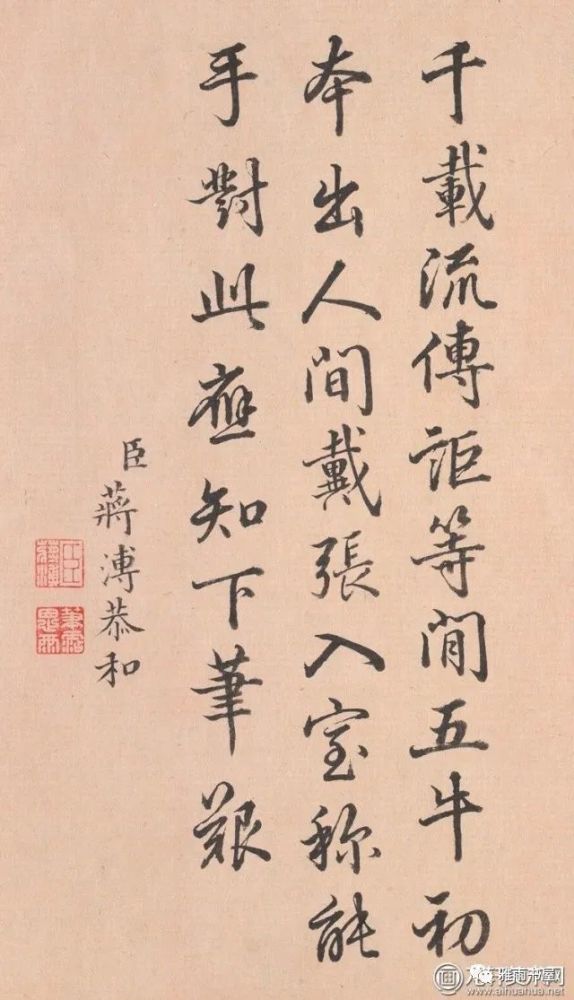 千載流傳詎等閒五牛初
本出人間戴張入室称能
手對此應知下筆艱
臣蔣溥恭和
www.aihuahua.net